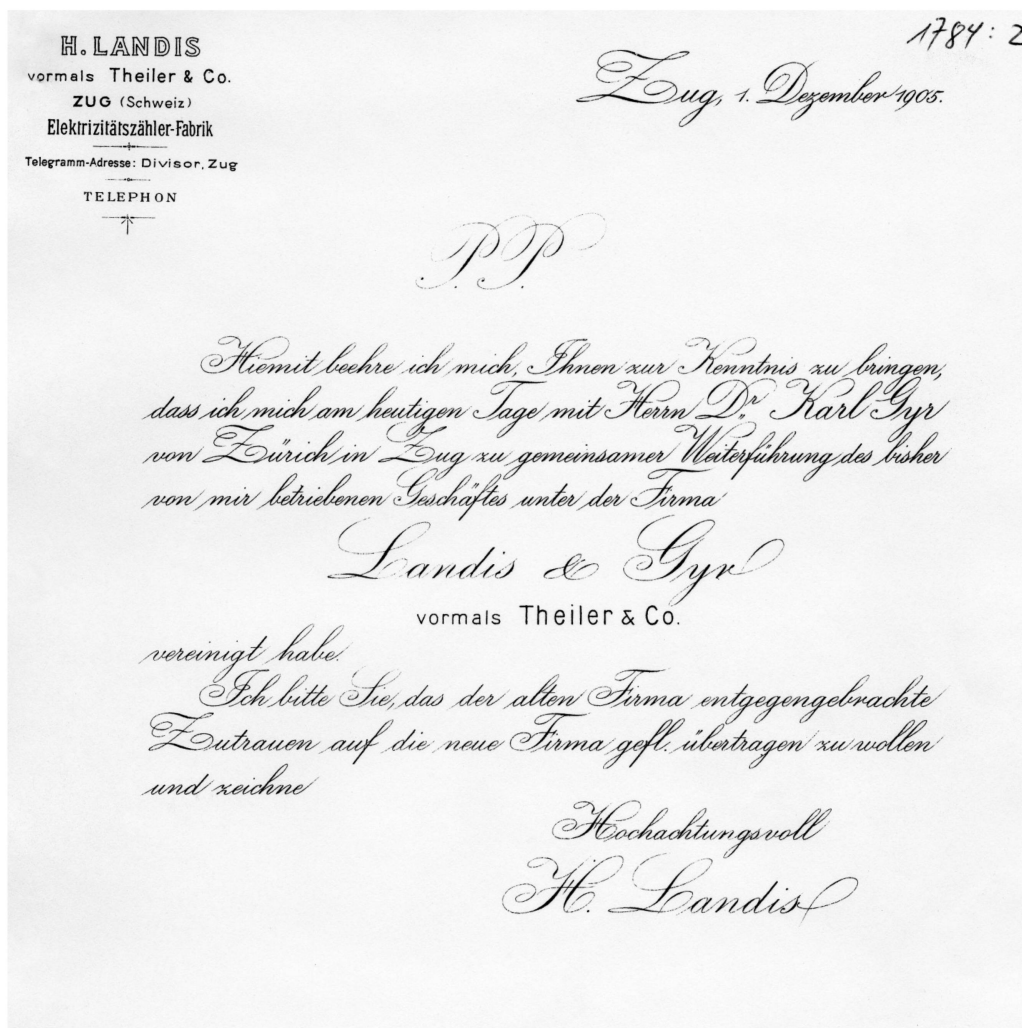 H. LANDIS
vormals Theiler & Co.
ZUG (Schweiz)
Elektrizitätszähler-Fabrik
Telegramm-Adresse: Divisor, Zug
TELEPHON
1784: 2
Zug, 1. Dezember 1905.
P. P.
Hiemit beehre ich mich, Ihnen zur Kenntnis zu bringen,
dass ich mich am heutigen Tage mit Herrn Dr. Karl Gyr
von Zürich in Zug zu gemeinsamer Weiterführung des bisher
von mir betriebenen Geschäftes unter der Firma
Landis & Gyr
vormals Theiler & Co.
vereinigt habe.
Ich bitte Sie, das der alten Firma entgegengebrachte
Zutrauen auf die neue Firma gefl. übertragen zu wollen
und zeichne
Hochachtungsvoll
H. Landis